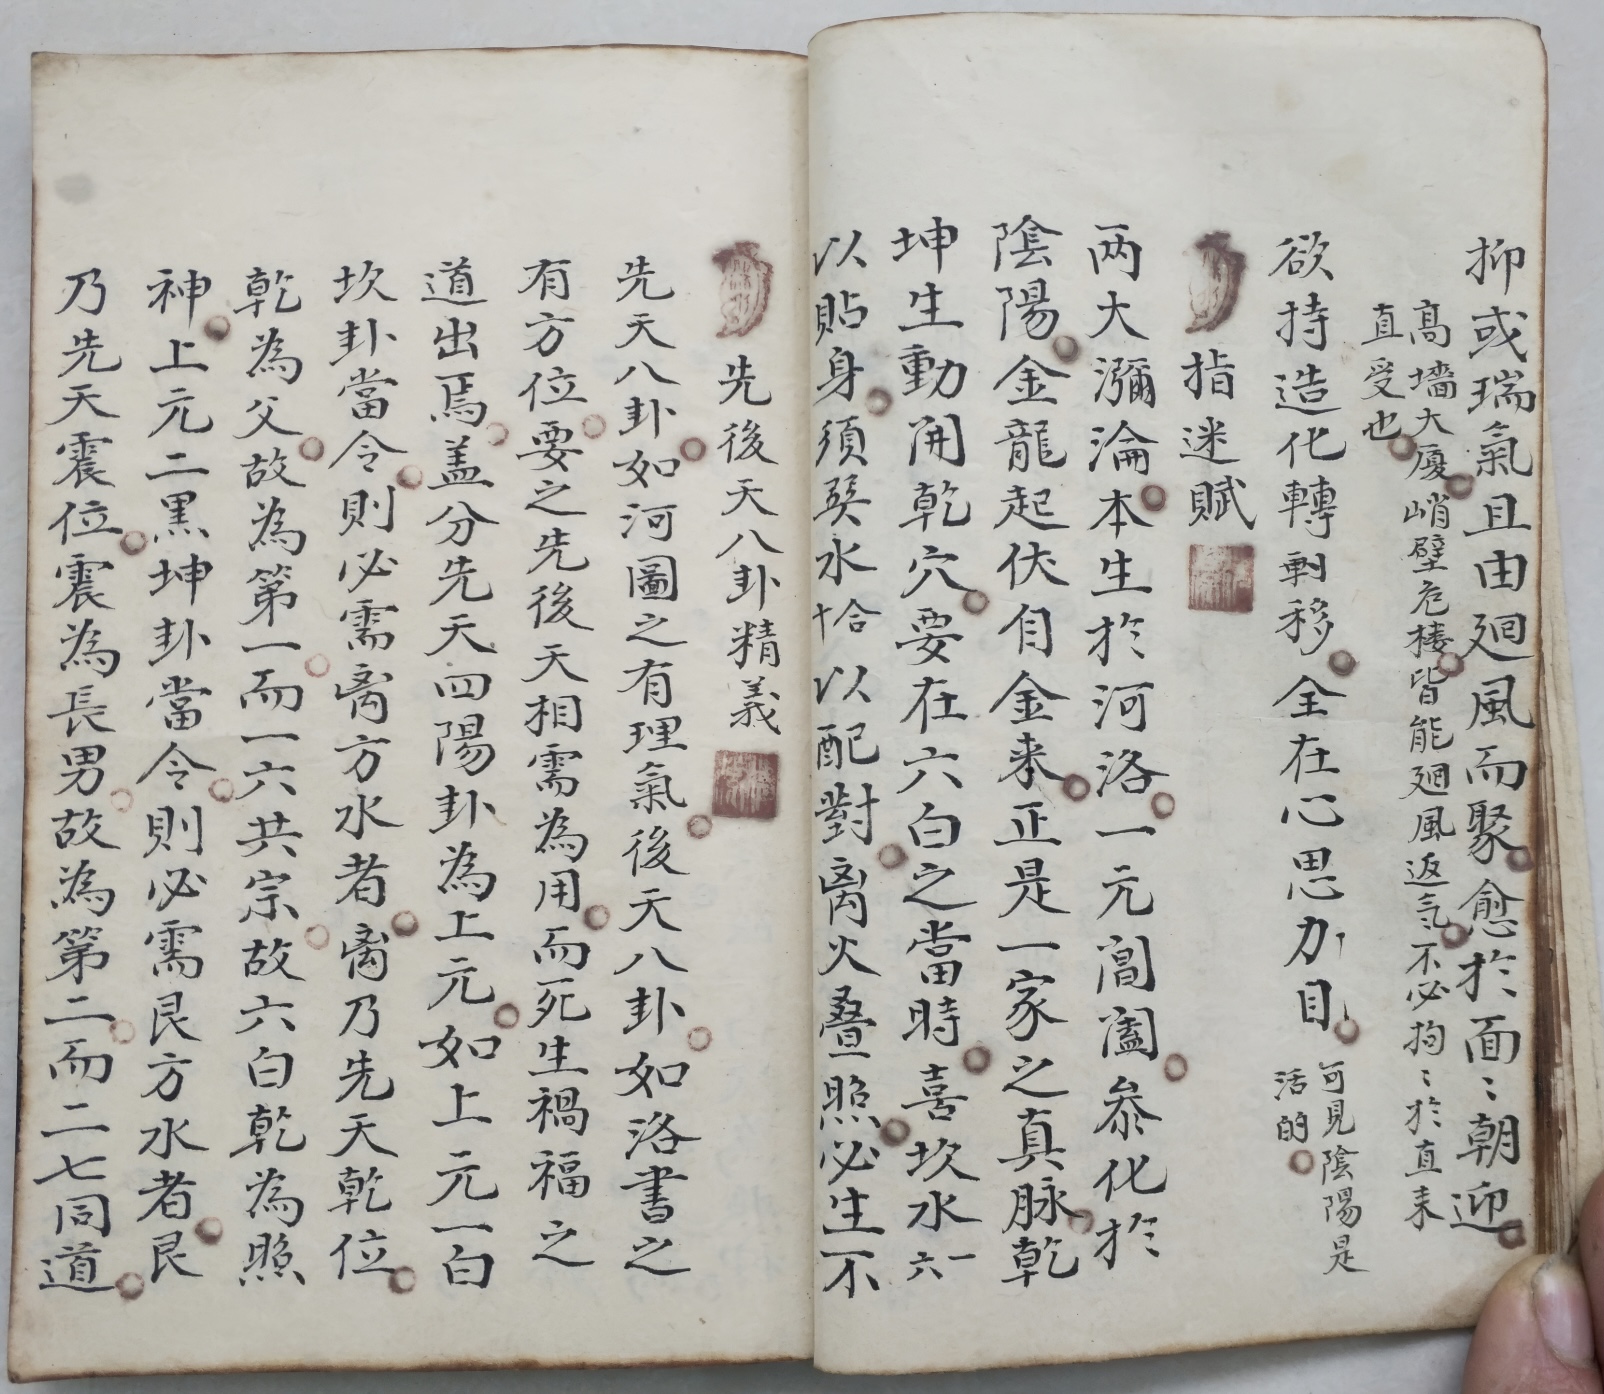 抑或瑞氣且由廻風而聚愈於面〻朝迎
高墻大廈峭壁危楼皆能廻風返気不必拘〻於直来
直受也
欲持造化轉剌移全在心思力目
可見陰陽是
活的
指迷賦
两大瀰淪本生於河洛一元闔闢參化於
陰陽金龍起伏自金来正是一家之真脉乾
坤生動開乾穴要在六白之當時喜坎水一六
以貼身須癸水恰十以配對离火叠照必生不
先後天八卦精義
先天八卦如河圖之有理氣後天八卦如洛書之
有方位要之先後天相需為用而死生禍福之
道出焉盖分先天四陽卦為上元如上元一白
坎卦當令則必需离方水者离乃先天乾位
乾為父故為第一而一六共宗故六白乾為照
神上元二黑坤卦當令則必需艮方水者艮
乃先天震位震為長男故為第二而二七同道